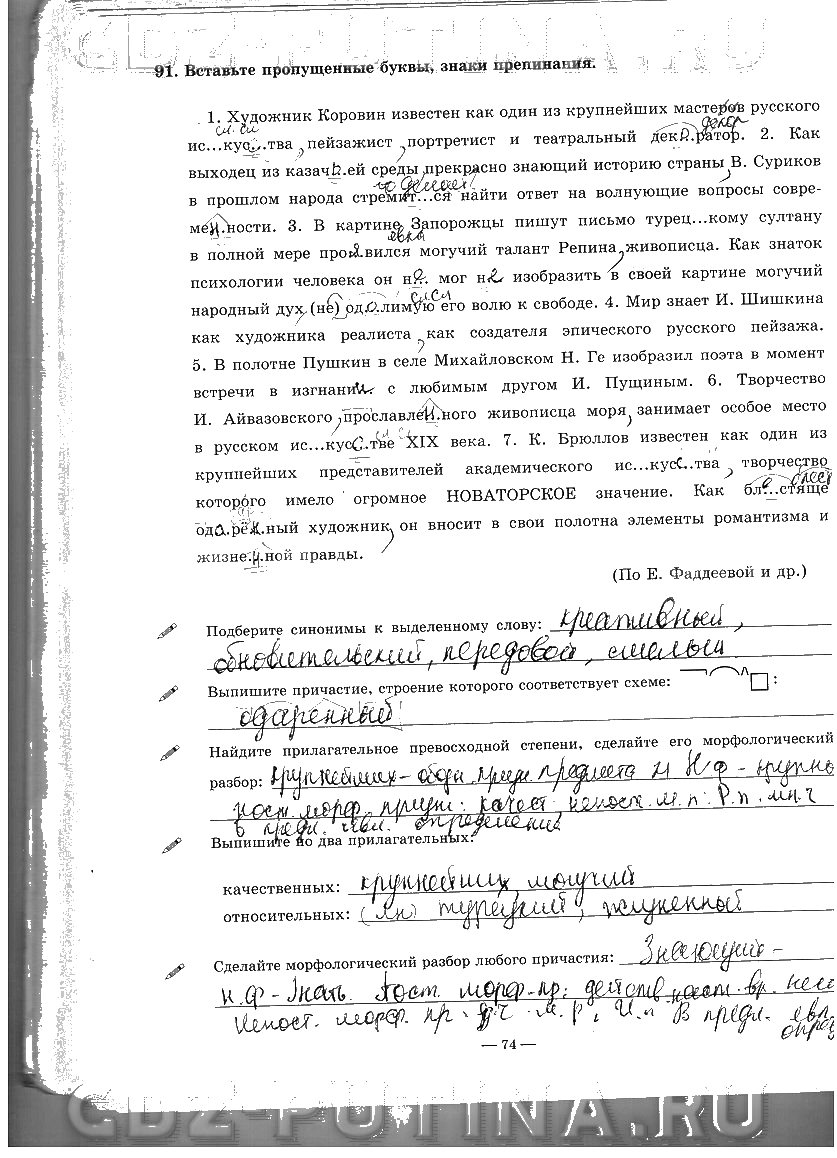 GDZ-PUTINA.RU
91. Вставьте пропущенные буквы, знаки препинания.
1. Художник Коровин известен как один из крупнейших мастеров русского
ис...кус...тва, пейзажист, портретист и театральный дек о.ратор. 2. Как
выходец из казач ь.ей среды, прекрасно знающий историю страны, В. Суриков
в прошлом народа стремит...ся найти ответ на волнующие вопросы совре-
ме н.ности. 3. В картине Запорожцы пишут письмо турец...кому султану
в полной мере про я.вился могучий талант Репина, живописца. Как знаток
психологии человека он н е. мог н е изобразить в своей картине могучий
народный дух, (не) од о.лимую его волю к свободе. 4. Мир знает И. Шишкина
как художника реалиста, как создателя эпического русского пейзажа.
5. В полотне Пушкин в селе Михайловском Н. Ге изобразил поэта в момент
встречи в изгнани и. с любимым другом И. Пущиным. 6. Творчество
И. Айвазовского, прославле н.ного живописца моря, занимает особое место
в русском ис...кус с.тве XIX века. 7. К. Брюллов известен как один из
крупнейших представителей академического ис...кус с..тва, творчество
которого имело огромное НОВАТОРСКОЕ значение. Как бл е..стяще
од а.рё н.ный художник, он вносит в свои полотна элементы романтизма и
жизне.н.ной правды.
(По Е. Фаддеевой и др.)
Подберите синонимы к выделенному слову: креативный,
обновительский, передовой, смелый
Выпишите причастие, строение которого соответствует схеме:
одарённый
Найдите прилагательное превосходной степени, сделайте его морфологический
разбор: крупнейших - обозн. призн. предмета Н.ф - крупны
пост. морф. призн: качест. непост. м.п: Р.п. мн.ч
в предл. явл. определением
Выпишите по два прилагательных:
качественных: крупнейших, могучий
относительных: турецкий,
Сделайте морфологический разбор любого причастия: Знающий -
н.ф - Знать. Пост. морф. пр: действ. наст. вр.
Непост. морф. пр. м.р, И.п В предл. явл.
опред
— 74 —
GDZ-PUTINA.RU